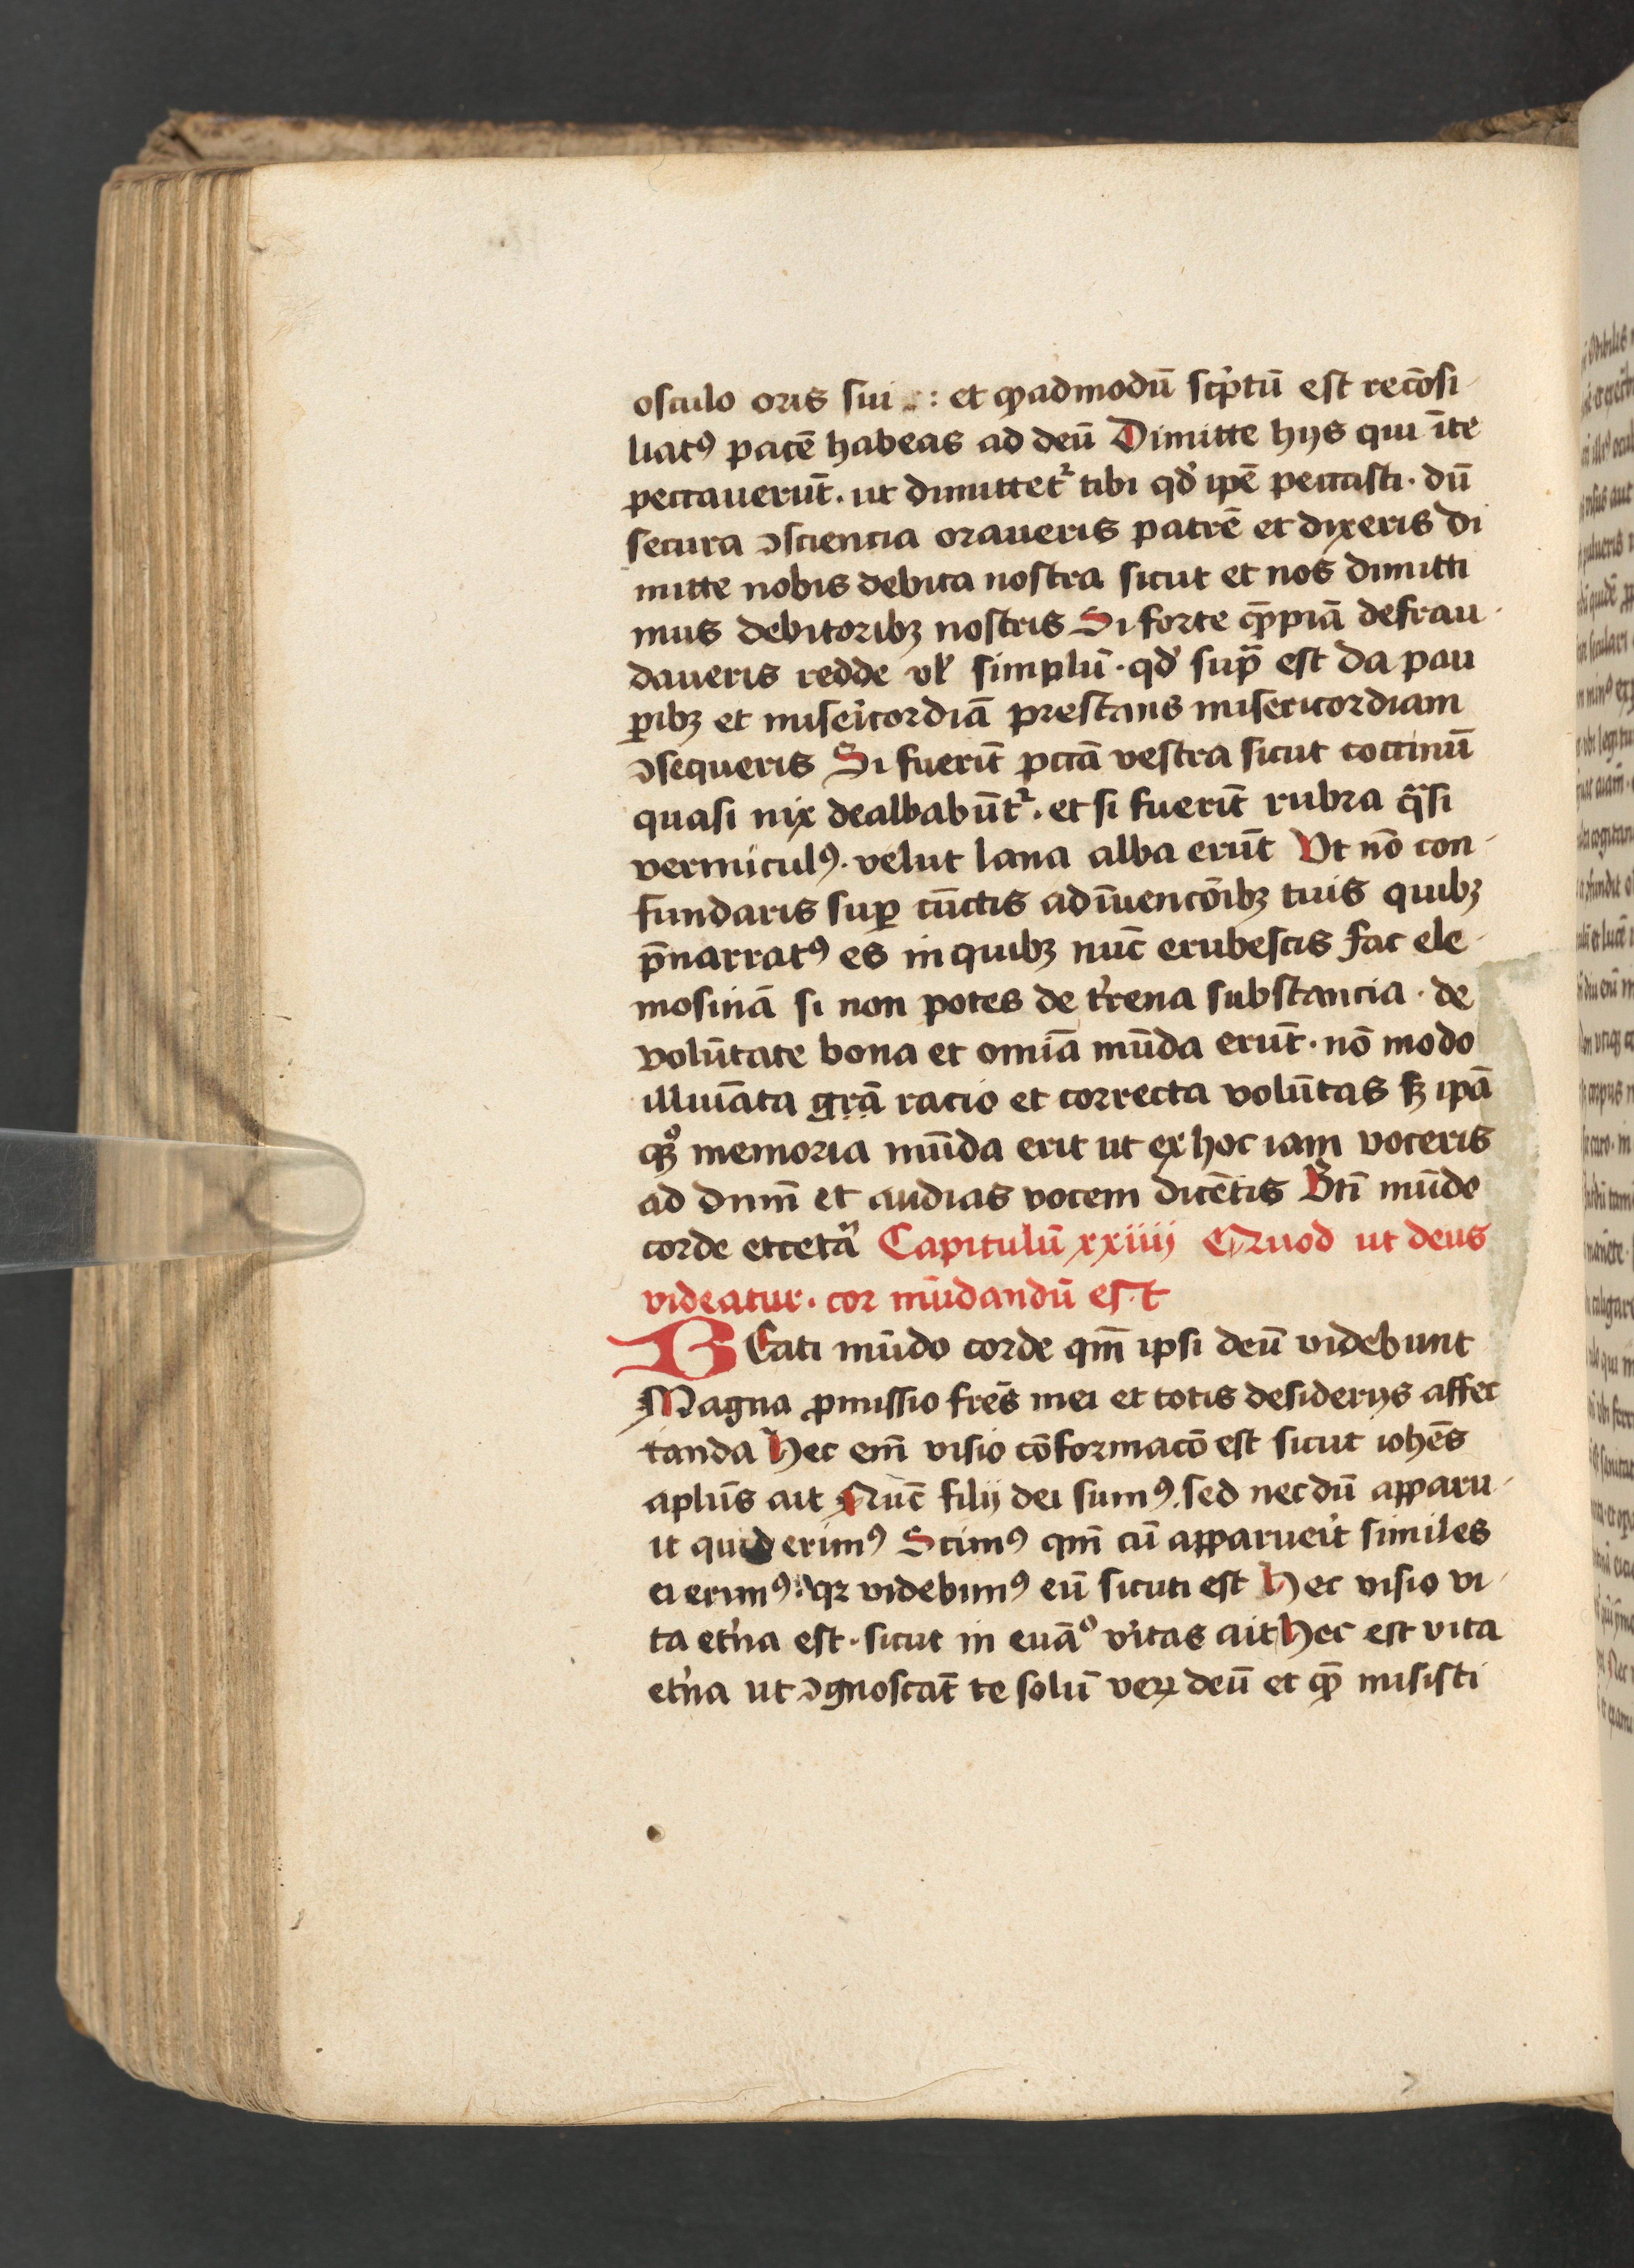 osculo oris sui : et qͫadmodū sc̓ptū est recōsi-
liatꝰ pacē habeas ad deū Dimitte hijs qui īte
peccauerūt. ut dimittet᷑ tibi qd̓ ipē peccasti. dū
secura ꝯsciencia oraueris patrē et dixeris di
mitte nobis debita nostra sicut et nos dimitti
mus debitoribꝫ nostris Si forte qͫpiā defrau-
daueris redde vl̓ simplū. qd̓ supᷓ est da pau
ꝑibꝫ et miser̓icordiā prestans misericordiam
ꝯsequeris Si fuerīt pccā vestra sicut coccinū
quasi nix dealbabūt᷑. et si fuerīt rubra qᷓsi
vermiculꝰ. velut lana alba erūt Vt nō con-
fundaris suꝑ cūctis adīuencōibꝫ tuis quibꝫ
p̄narratꝰ es in quibꝫ nūc erubescis fac ele-
mosinā si non potes de t̓rena substancia. de
volūtate bona et omīa mūda erūt. nō modo
illuīata grā racio et correcta volūtas sꝫ ipā
qꝫͦ memoria mūda erit ut ex hoc iam voceris
ad dnm̄ et audias vocem dicētis Bt̄i mūdo
corde etcetᷓa Capitulū xxiiij Quod ut deus
videatur. cor mūdandū est
BEati mūdo corde qm̄ ipsi deū videbunt
Magna ꝓmissio frēs mei et totis desiderijs affec
tanda Hec em̄ visio cōformacō est sicut iohēs
aplūs ait Nūc filij dei sumꝰ. sed necdū apparu-
it quid erimꝰ Scimꝰ qm̄ cū apparuer̓it similes
ei erimꝰ: qꝛ videbimꝰ eū sicuti est Hec visio vi-
ta et̓na est. sicut in euāͦ v̓itas ait Hec est vita
et̓na ut ꝯgnoscāt te solū veꝝ deū et qͫ misisti